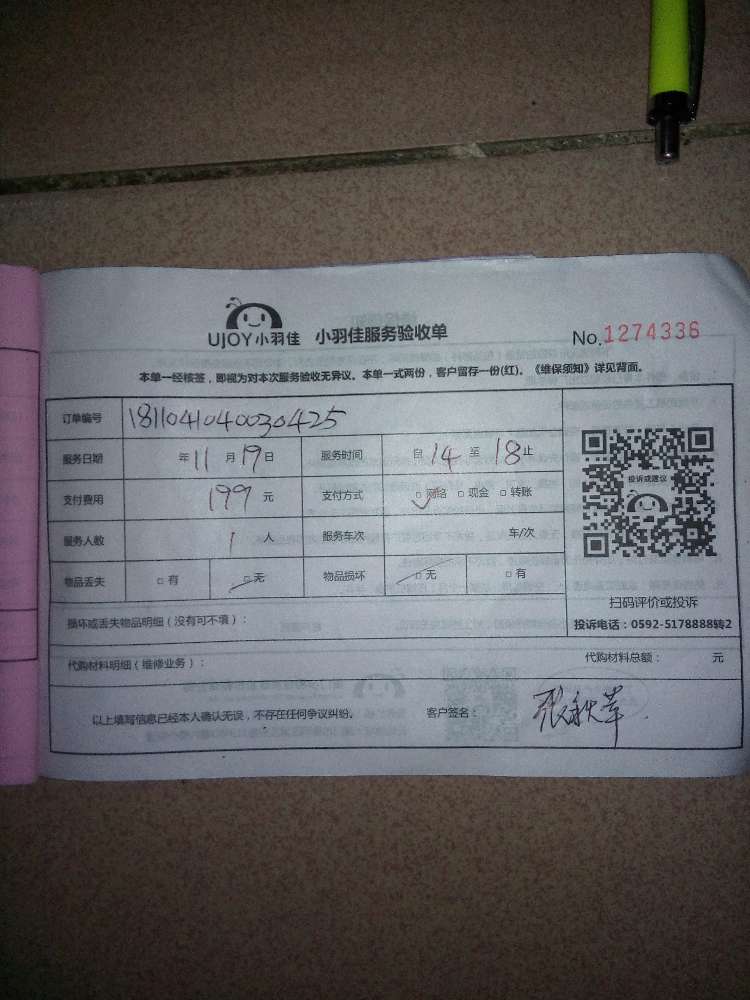 UJOY小羽佳 小羽佳服务验收单 No.1274336
本单一经核签，即视为对本次服务验收无异议。本单一式两份，客户留存一份(红)。《维保须知》详见背面。
订单编号 1811041040030425
服务日期 年11月19日 服务时间 自14至18止
支付费用 199元 支付方式 □网络 □现金 □转账
服务人数 1人 服务车次 车/次
物品丢失 □有 □无 物品损坏 □无 □有
投诉或建议
扫码评价或投诉
投诉电话：0592-5178888转2
损坏或丢失物品明细（没有可不填）：
代购材料明细（维修业务）： 代购材料总额： 元
以上填写信息已经本人确认无误，不存在任何争议纠纷。 客户签名：